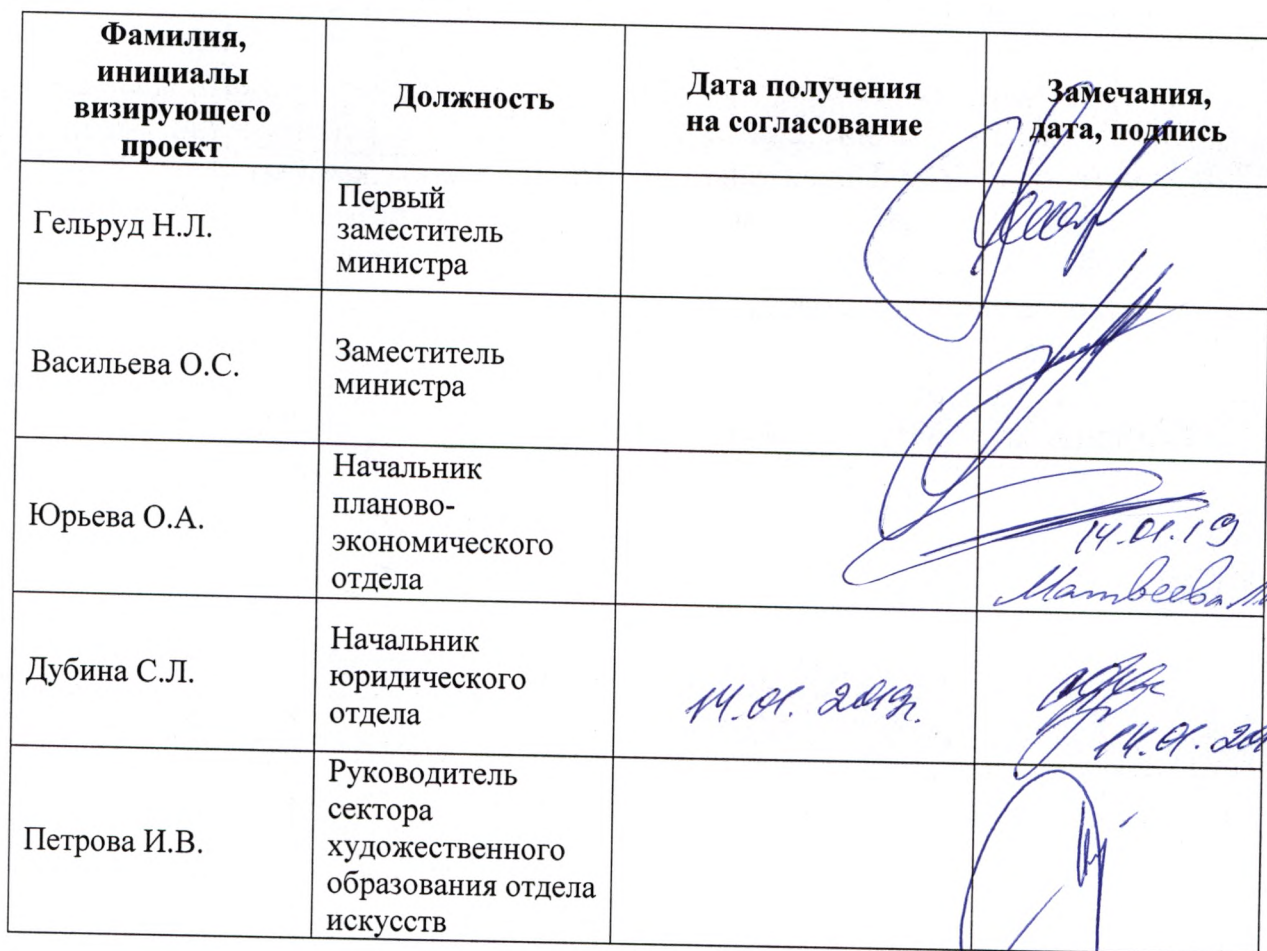 Фамилия,
инициалы
визирующего
проект
Должность
Дата получения
на согласование
Замечания,
дата, подпись
Гельруд Н.Л.
Первый
заместитель
министра
Васильева О.С.
Заместитель
министра
Юрьева О.А.
Начальник
планово-
экономического
отдела
14.01.19
Матвеева
Дубина С.Л.
Начальник
юридического
отдела
14.01.2019г.
14.01.20
Петрова И.В.
Руководитель
сектора
художественного
образования отдела
искусств